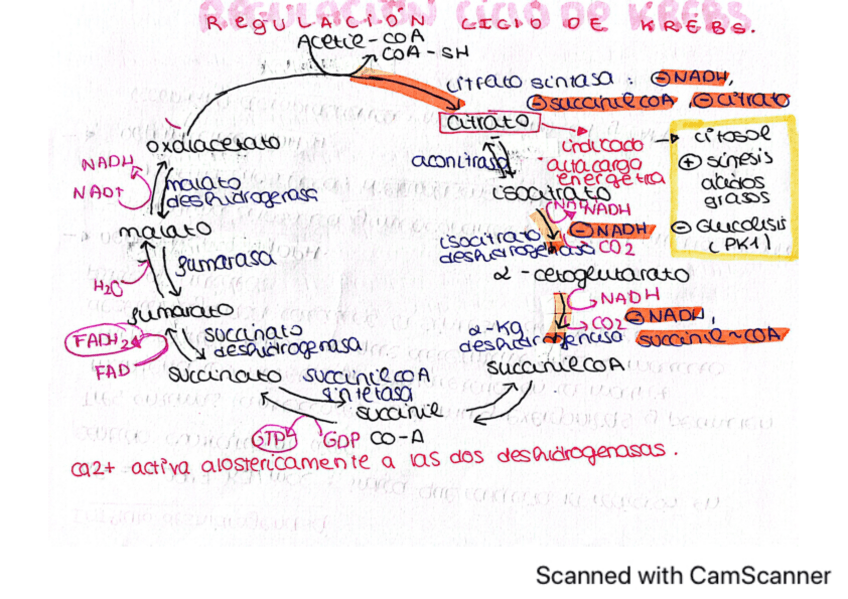 REGULACIÓN CICLO DE KREBS.
Acetil-COA
COA-SH
citrato sintasa : ⊖ NADH,
⊖ succinil COA , ⊖ citrato
citrato
indicado
alta carga
energetica
→ citosol
⊕ síntesis
ácidos
grasos
⊖ Glucolisis
(PK1)
aconitrasa
isocitrato
NADH
⊖ NADH
CO2
isocitrato
deshidrogenasa
α-cetoglutarato
NADH
CO2
⊖ NADH,
succinil~COA
α-Kg
deshidrogenasa
succinil COA
oxalacetato
NADH
NAD+
malato
deshidrogenasa
malato
fumarasa
H2O
fumarato
FADH2
FAD
succinato
deshidrogenasa
succinato
succinil COA
sintetasa
succinil
CO-A
GTP
GDP
Ca2+ activa alostericamente a las dos deshidrogenasas.
Scanned with CamScanner